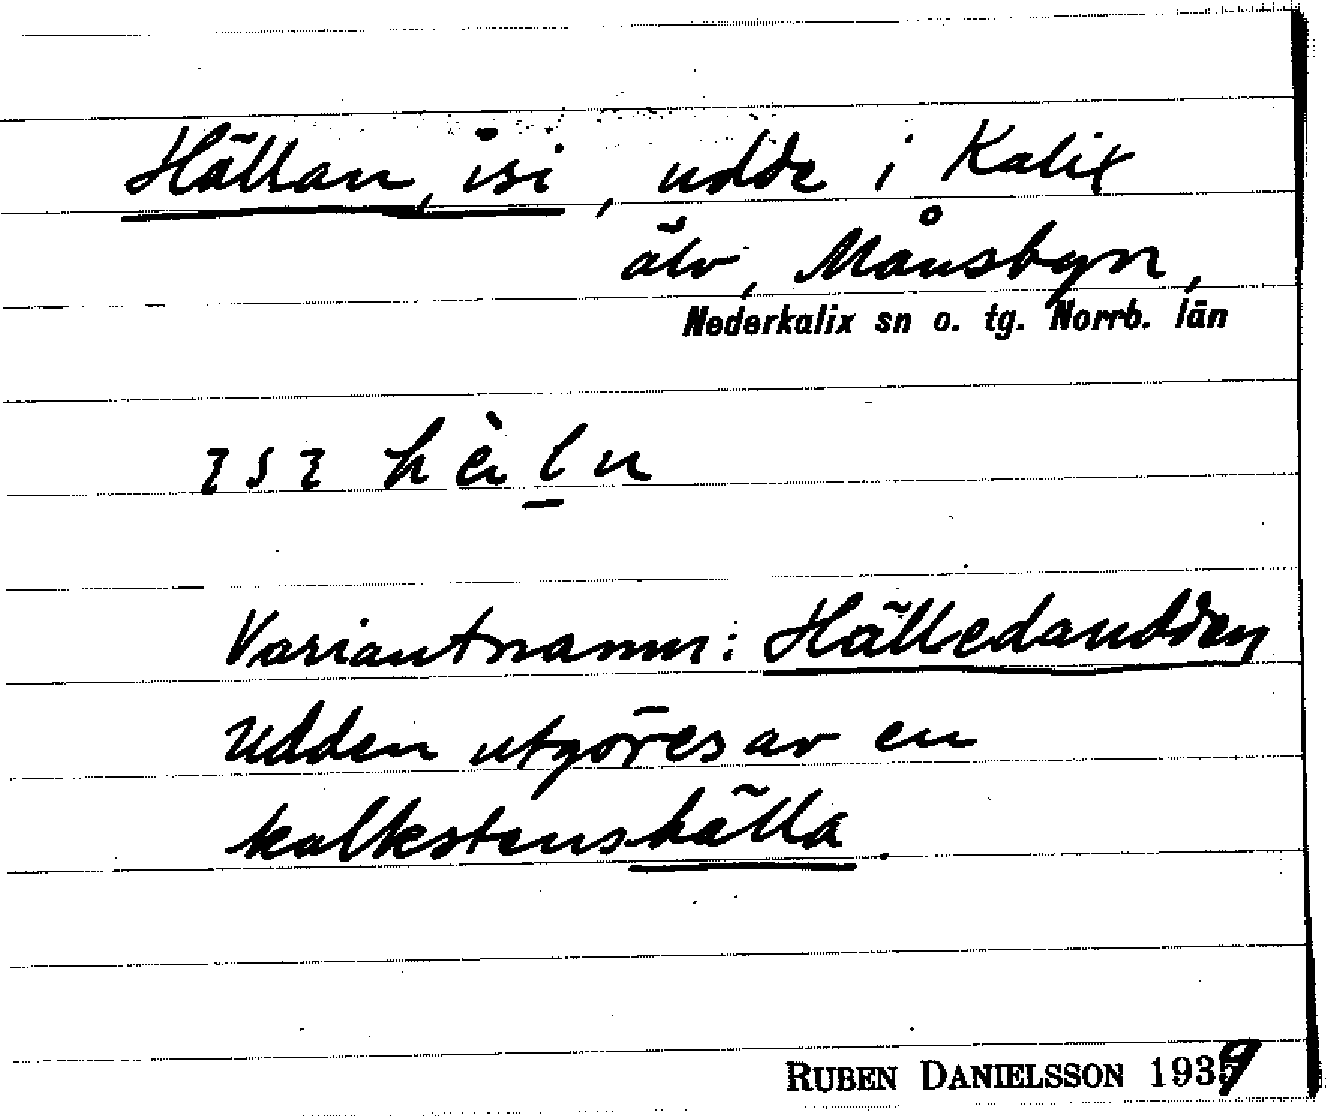 Hällan, isi, udde i Kalix
älv, Månsbyn,
Nederkalix sn o. tg. Norrb. län
Variantnamn: Hälledaudden
Udden utgöres av en
kalkstenshälla.
RUBEN DANIELSSON 1939